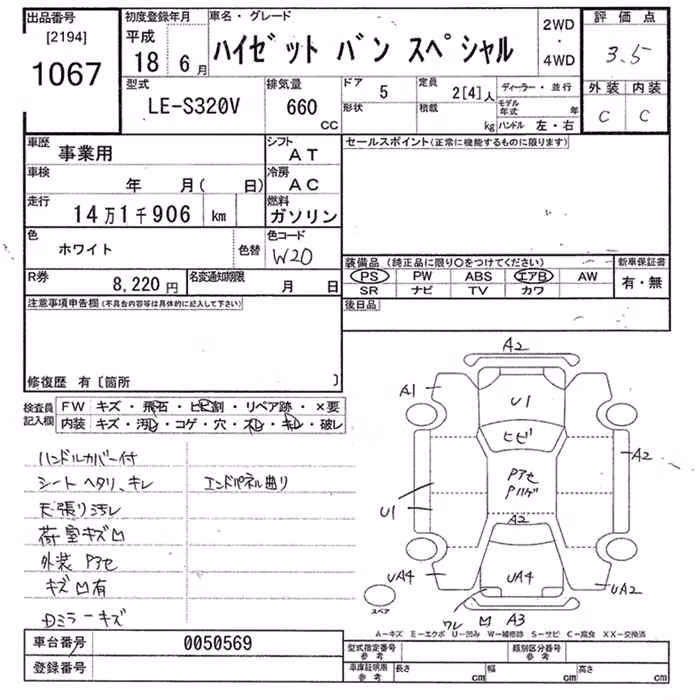 出品番号
[2194]
1067
初度登録年月
平成
18 6月
車名・グレード
ハイゼット バン スペシャル
2WD
・
4WD
評価点
3.5
外装 内装
C C
型式
LE-S320V
排気量
660
CC
ドア
5
形状
定員
2[4]人
積載
kg
ディーラー・並行
モデル年式 年
ハンドル 左・右
車歴
事業用
シフト
AT
車検
年 月( 日)
冷房
AC
走行
14万1千906 km
燃料
ガソリン
色
ホワイト
色替
色コード
W20
R券
8,220円
名変通知期限
月 日
セールスポイント(正常に機能するものに限ります)
装備品(純正品に限り○をつけてください)
PS PW ABS エアB AW
SR ナビ TV カワ
新車保証書
有・無
後日品
注意事項申告欄(不具合内容等は具体的に記入して下さい)
修復歴 有〔箇所 〕
検査員記入欄
FW キズ・飛石・ヒビ割・リペア跡・×要
内装 キズ・汚れ・コゲ・穴・スレ・キレ・破レ
ハンドルカバー付
シート ヘタリ、キレ
エンドパネル曲り
天張り汚レ
荷室キズ凹
外装 Pアセ
キズ凹有
Dミラーキズ
A2
A1
U1
ヒビ
A2
Pアセ
Pハゲ
U1
A2
UA4
UA4
UA2
ワレ
凹 A3
スペア
A−キズ E−エクボ U−凹み W−補修跡 S−サビ C−腐食 XX−交換済
車台番号
0050569
登録番号
型式指定番号
参考
類別区分番号
参考
車庫証明用
参考
長さ cm
幅 cm
高さ cm